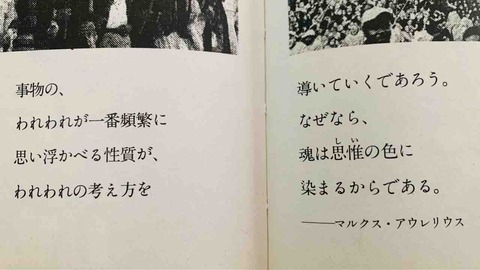 事物の、
われわれが一番頻繁に
思い浮かべる性質が、
われわれの考え方を
導いていくであろう。
なぜなら、
しい
魂は思惟の色に
染まるからである。
——マルクス・アウレリウス